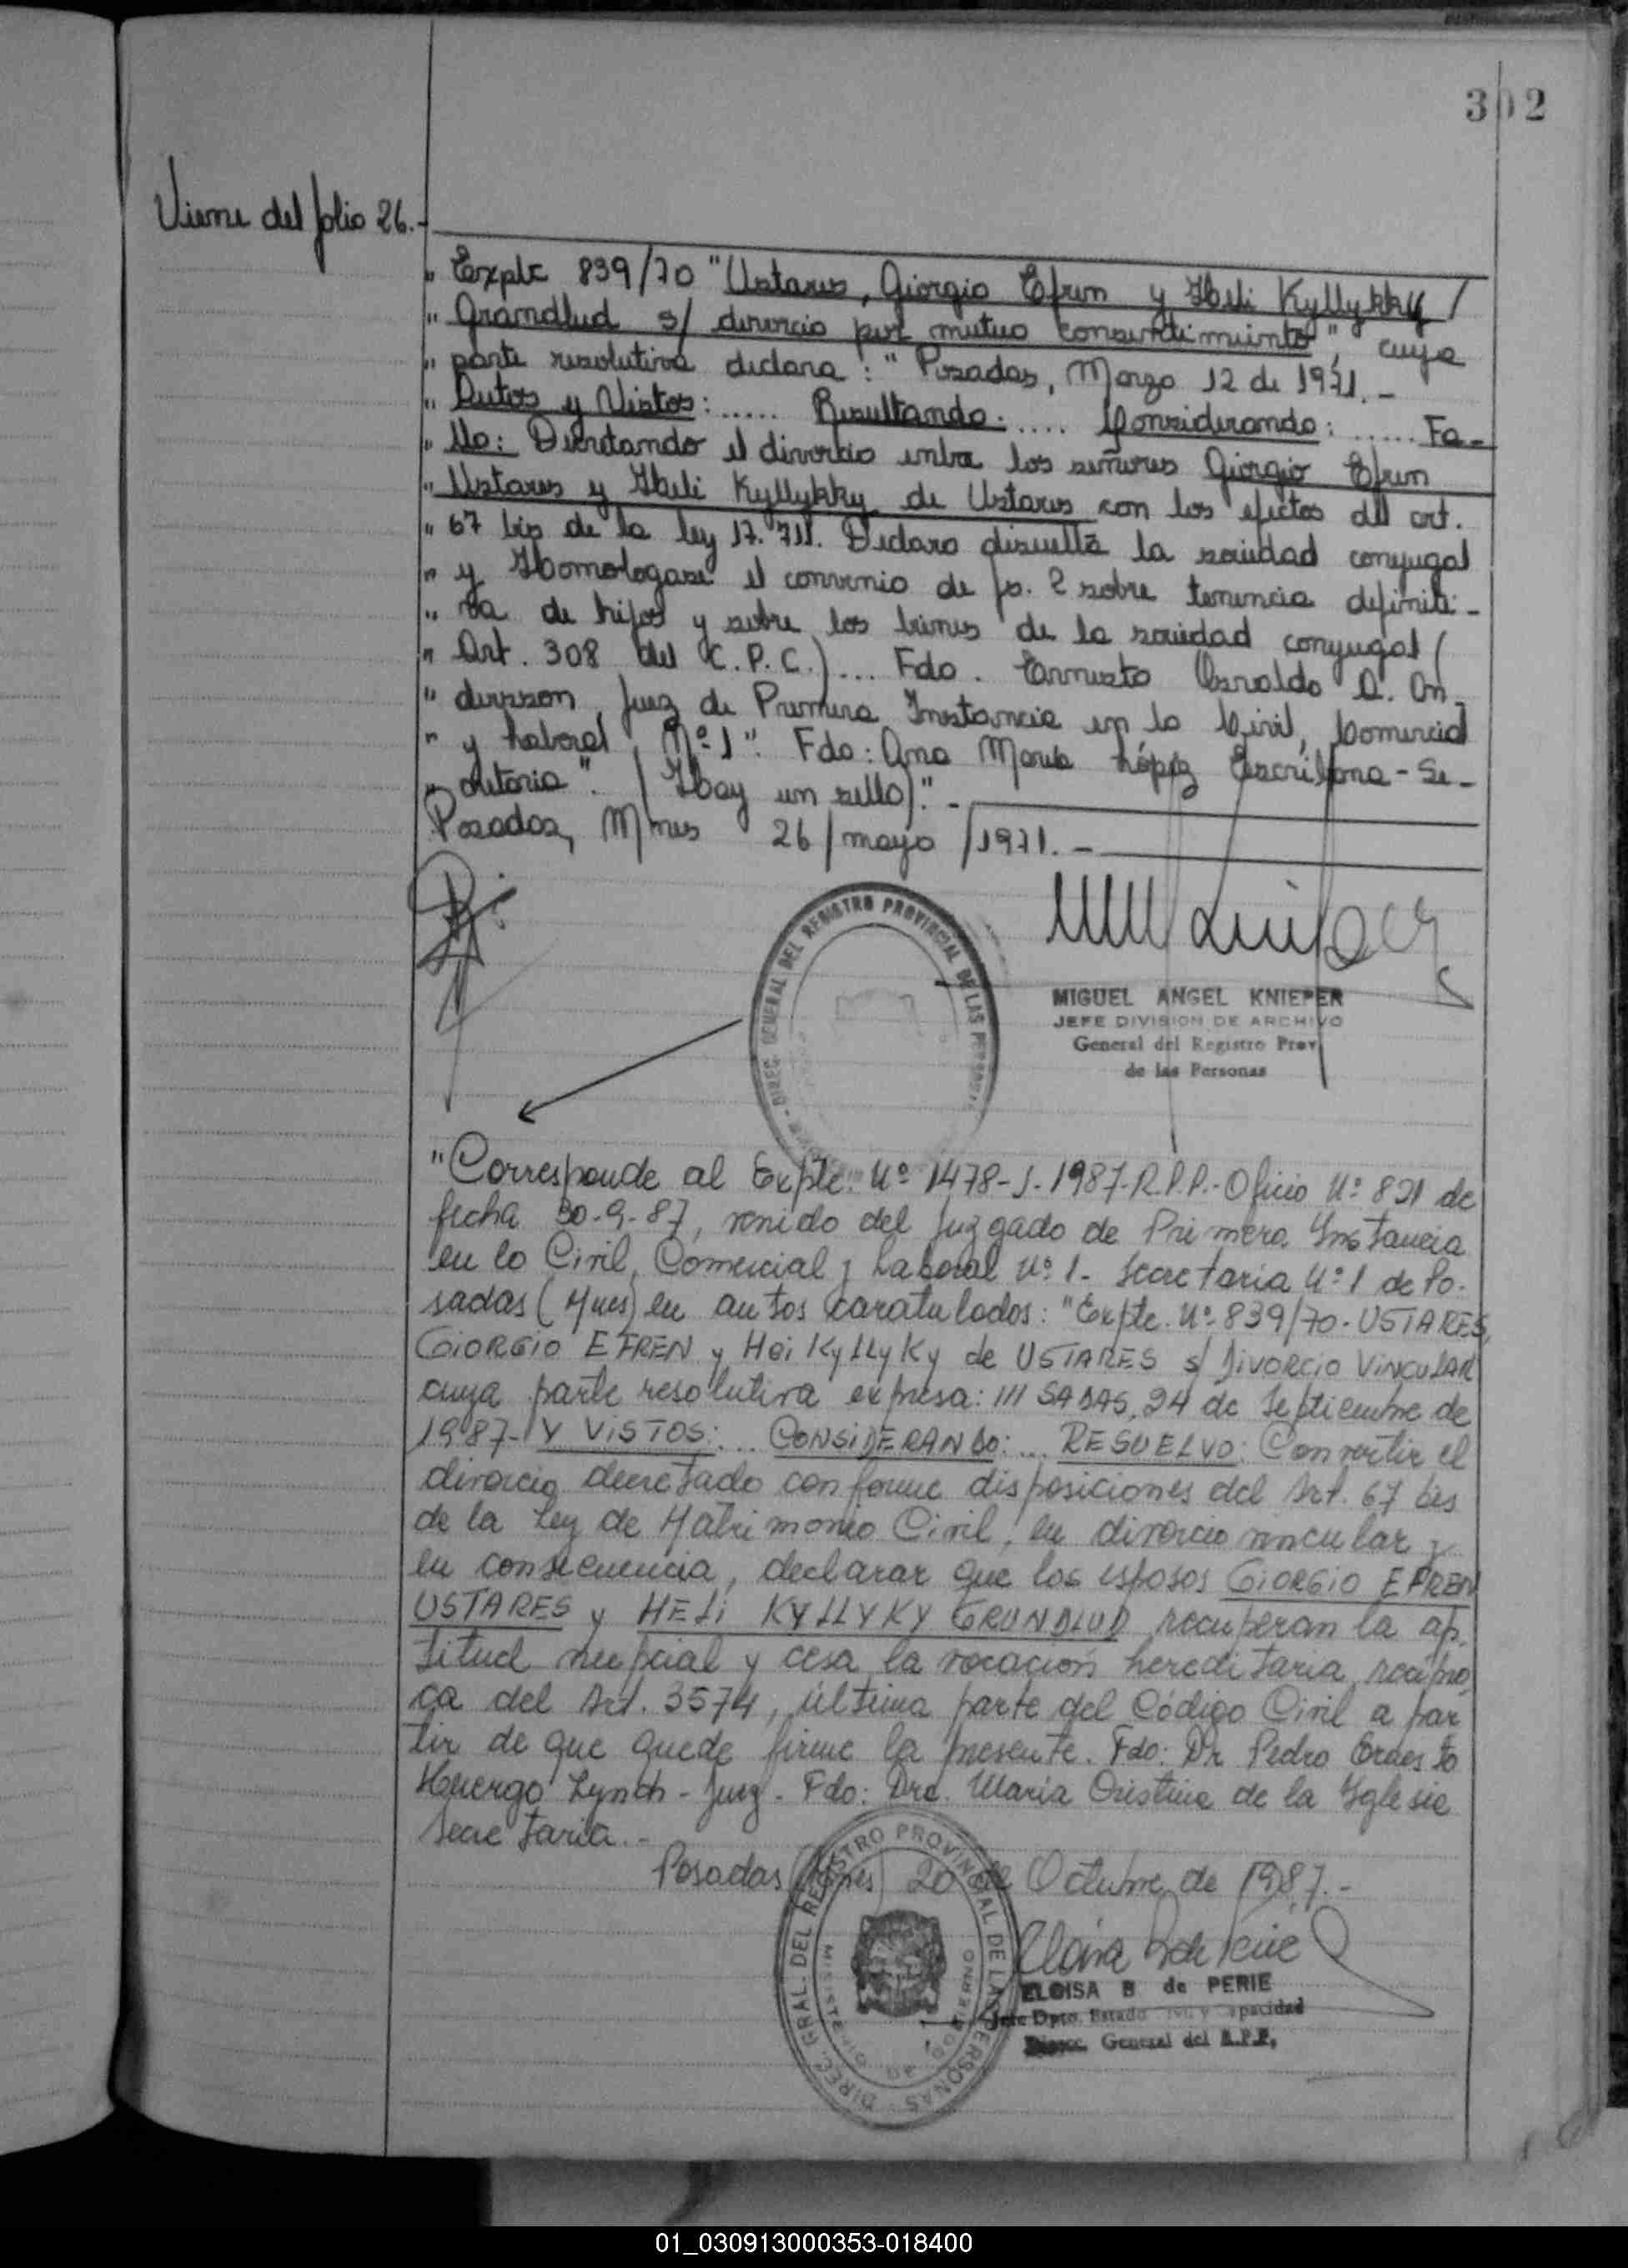 302
Viene del folio 26.-
" Expte 839/70 "Ustares, Giorgio Efren y Heli Kyllykky /
" Grandlud s/ divorcio por mutuo consentimiento", cuya
" parte resolutiva declara: "Posadas, Marzo 12 de 1971.-
" Autos y Vistos: ..... Resultando: .... Considerando: ..... Fa-
" llo: Decretando el divorcio entre los señores Giorgio Efren
" Ustares y Heli Kyllykky de Ustares con los efectos del art.
" 67 bis de la ley 17.711. Declaro disuelta la sociedad conyugal
" y Homologase el convenio de fs. 2 sobre tenencia definiti-
" va de hijos y sobre los bienes de la sociedad conyugal (
" Art. 308 del C.P.C.)... Fdo. Ernesto Osvaldo A. An-
" dersson, Juez de Primera Instancia en lo Civil, Comercial
" y Laboral Nº 1". Fdo: Ana María López Escribana - Se-
" cretaria". (Hay un sello)".-
Posadas, Mnes 26/mayo/1971.-
DIREC. GENERAL DEL REGISTRO PROVINCIAL DE LAS PERSONAS
MIGUEL ANGEL KNIEPER
JEFE DIVISION DE ARCHIVO
General del Registro Prov.
de las Personas
"Corresponde al Expte. Nº 1478-J-1987-R.P.P.-Oficio Nº 821 de
fecha 30-9-87, venido del Juzgado de Primera Instancia
en lo Civil, Comercial y Laboral Nº 1- Secretaria Nº 1 de Po-
sadas (Mnes) en autos caratulados: "Expte. Nº 839/70- USTARES,
GIORGIO EFREN y Hei KyLLyKy de USTARES s/ DiVORCIO VINCULAR
cuya parte resolutiva expresa: ///SADAS, 24 de Septiembre de
1987- Y VISTOS: ... CONSIDERANDO: ... RESUELVO: Convertir el
divorcio decretado conforme disposiciones del Art. 67 bis
de la Ley de Matrimonio Civil, en divorcio vincular y
en consecuencia, declarar que los esposos GIORGIO EFREN
USTARES y HELi KYLLYKY GRUNDLUD recuperan la ap-
titud nupcial y cesa la vocación hereditaria recipro-
ca del Art. 3574, última parte del Código Civil a par
tir de que quede firme la presente. Fdo: Dr Pedro Ernesto
Huergo Lynch - Juez - Fdo: Dra. María Cristina de la Iglesia
Secretaria.-
Posadas (Mnes) 20 de Octubre de 1987.-
DIREC. GRAL. DEL REGISTRO PROVINCIAL DE LAS PERSONAS
MINISTERIO DE GOBIERNO
ELOISA B de PERIE
Jefe Dpto. Estado Civil y Capacidad
Direcc. General del R.P.P.
01_030913000353-018400